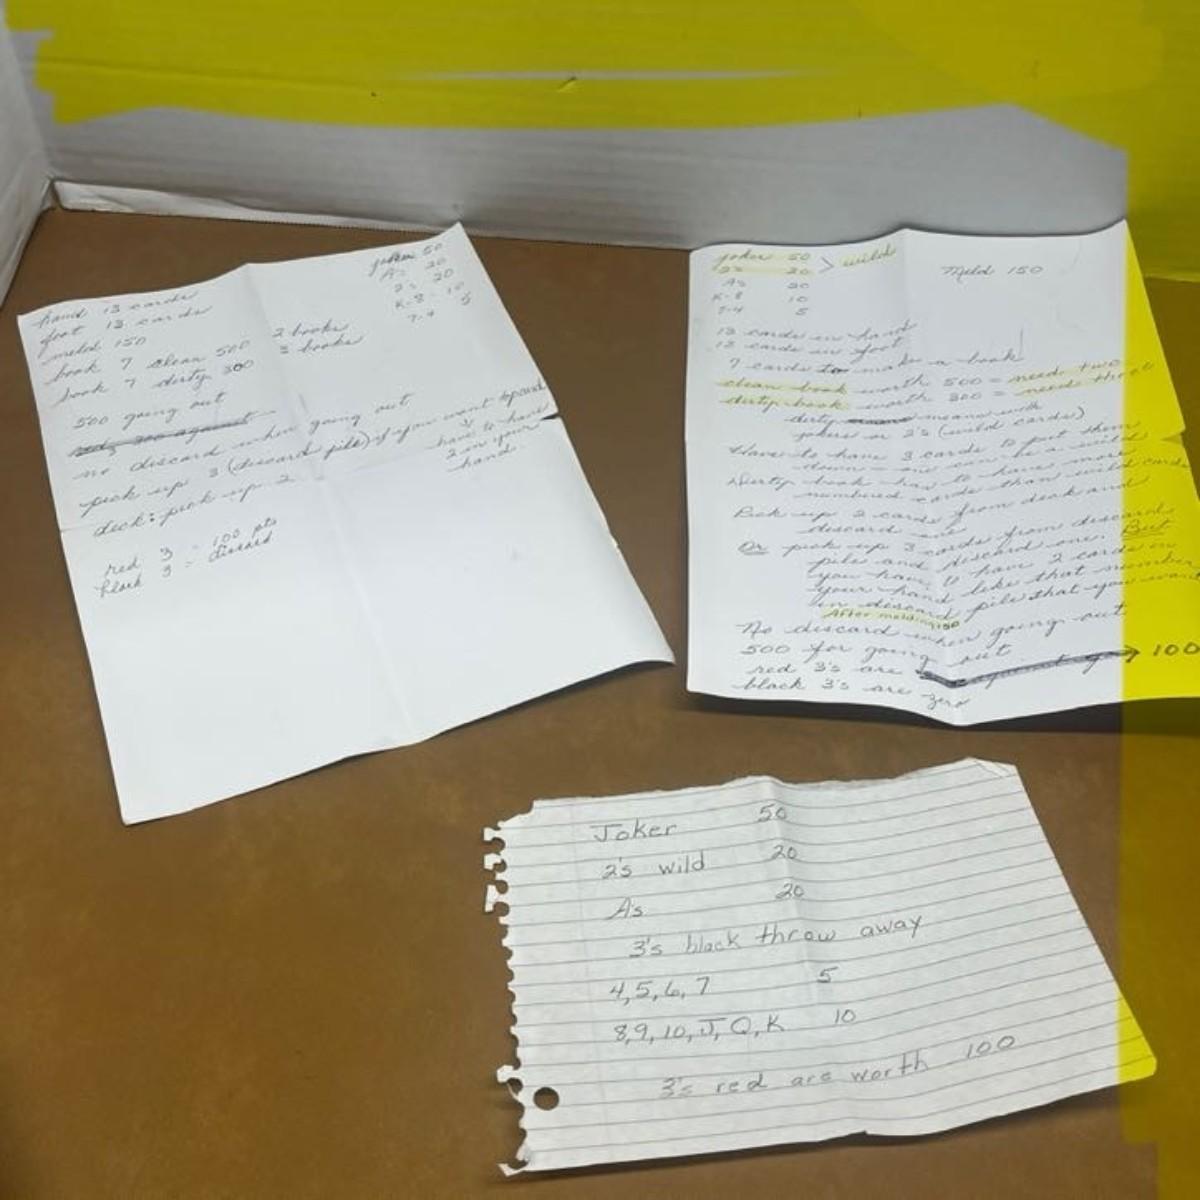 hand 13 cards
foot 13 cards
meld 150
book 7 clean 500 2 books
book 7 dirty 300 3 books
joker 50
A's 20
2's 20
K-8 - 10
7-4 5
500 going out
red 300 against
no discard when going out
pick up 3 (discard pile) if you want
have to have
2 in your
hand
deck: pick up 2
red 3 - 100 pts
black 3 - discard
joker 50 > wild
2's 20
Meld 150
A's 20
K-8 10
7-4 5
13 cards in hand
13 cards in foot
7 cards to make a book
clean book worth 500 = need two
dirty book worth 300 = need three
dirty means with
jokers or 2's (wild cards)
Have to have 3 cards to put them
down - one can be a wild
Dirty book has to have more
numbered cards than wild cards
Pick up 2 cards from deck and
discard one
Or pick up 3 cards from discard
pile and discard one. But
you have to have 2 cards in
your hand like that number
in discard pile that you want
After melding 150
No discard when going out
500 for going out
red 3's are 100
black 3's are zero
Joker 50
2's wild 20
A's 20
3's black throw away
4,5,6,7 5
8,9,10,J,Q,K 10
3's red are worth 100